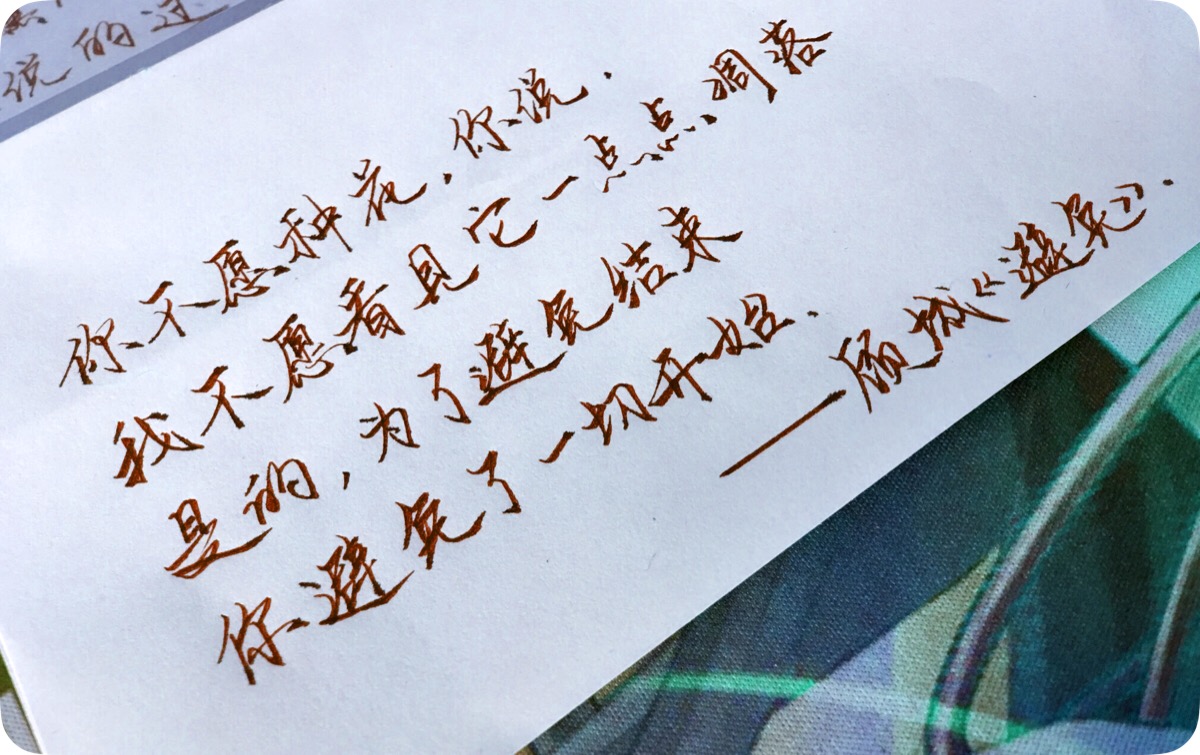 说的这
你不愿种花，你说．
我不愿看见它一点点凋落
是的，为了避免结束
你避免了一切开始．
——顾城《避免》．